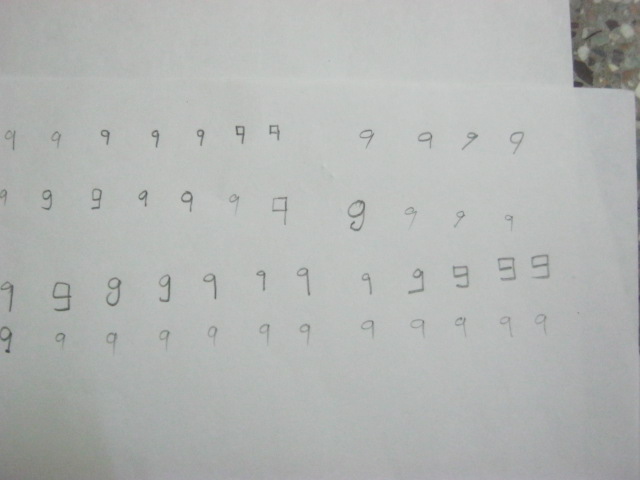 9 9 9 9 9 9 9 9 9 9 9
9 9 9 9 9 9 9 9 9 9 9
9 9 9 9 9 9 9 9 9 9 9 9
9 9 9 9 9 9 9 9 9 9 9 9